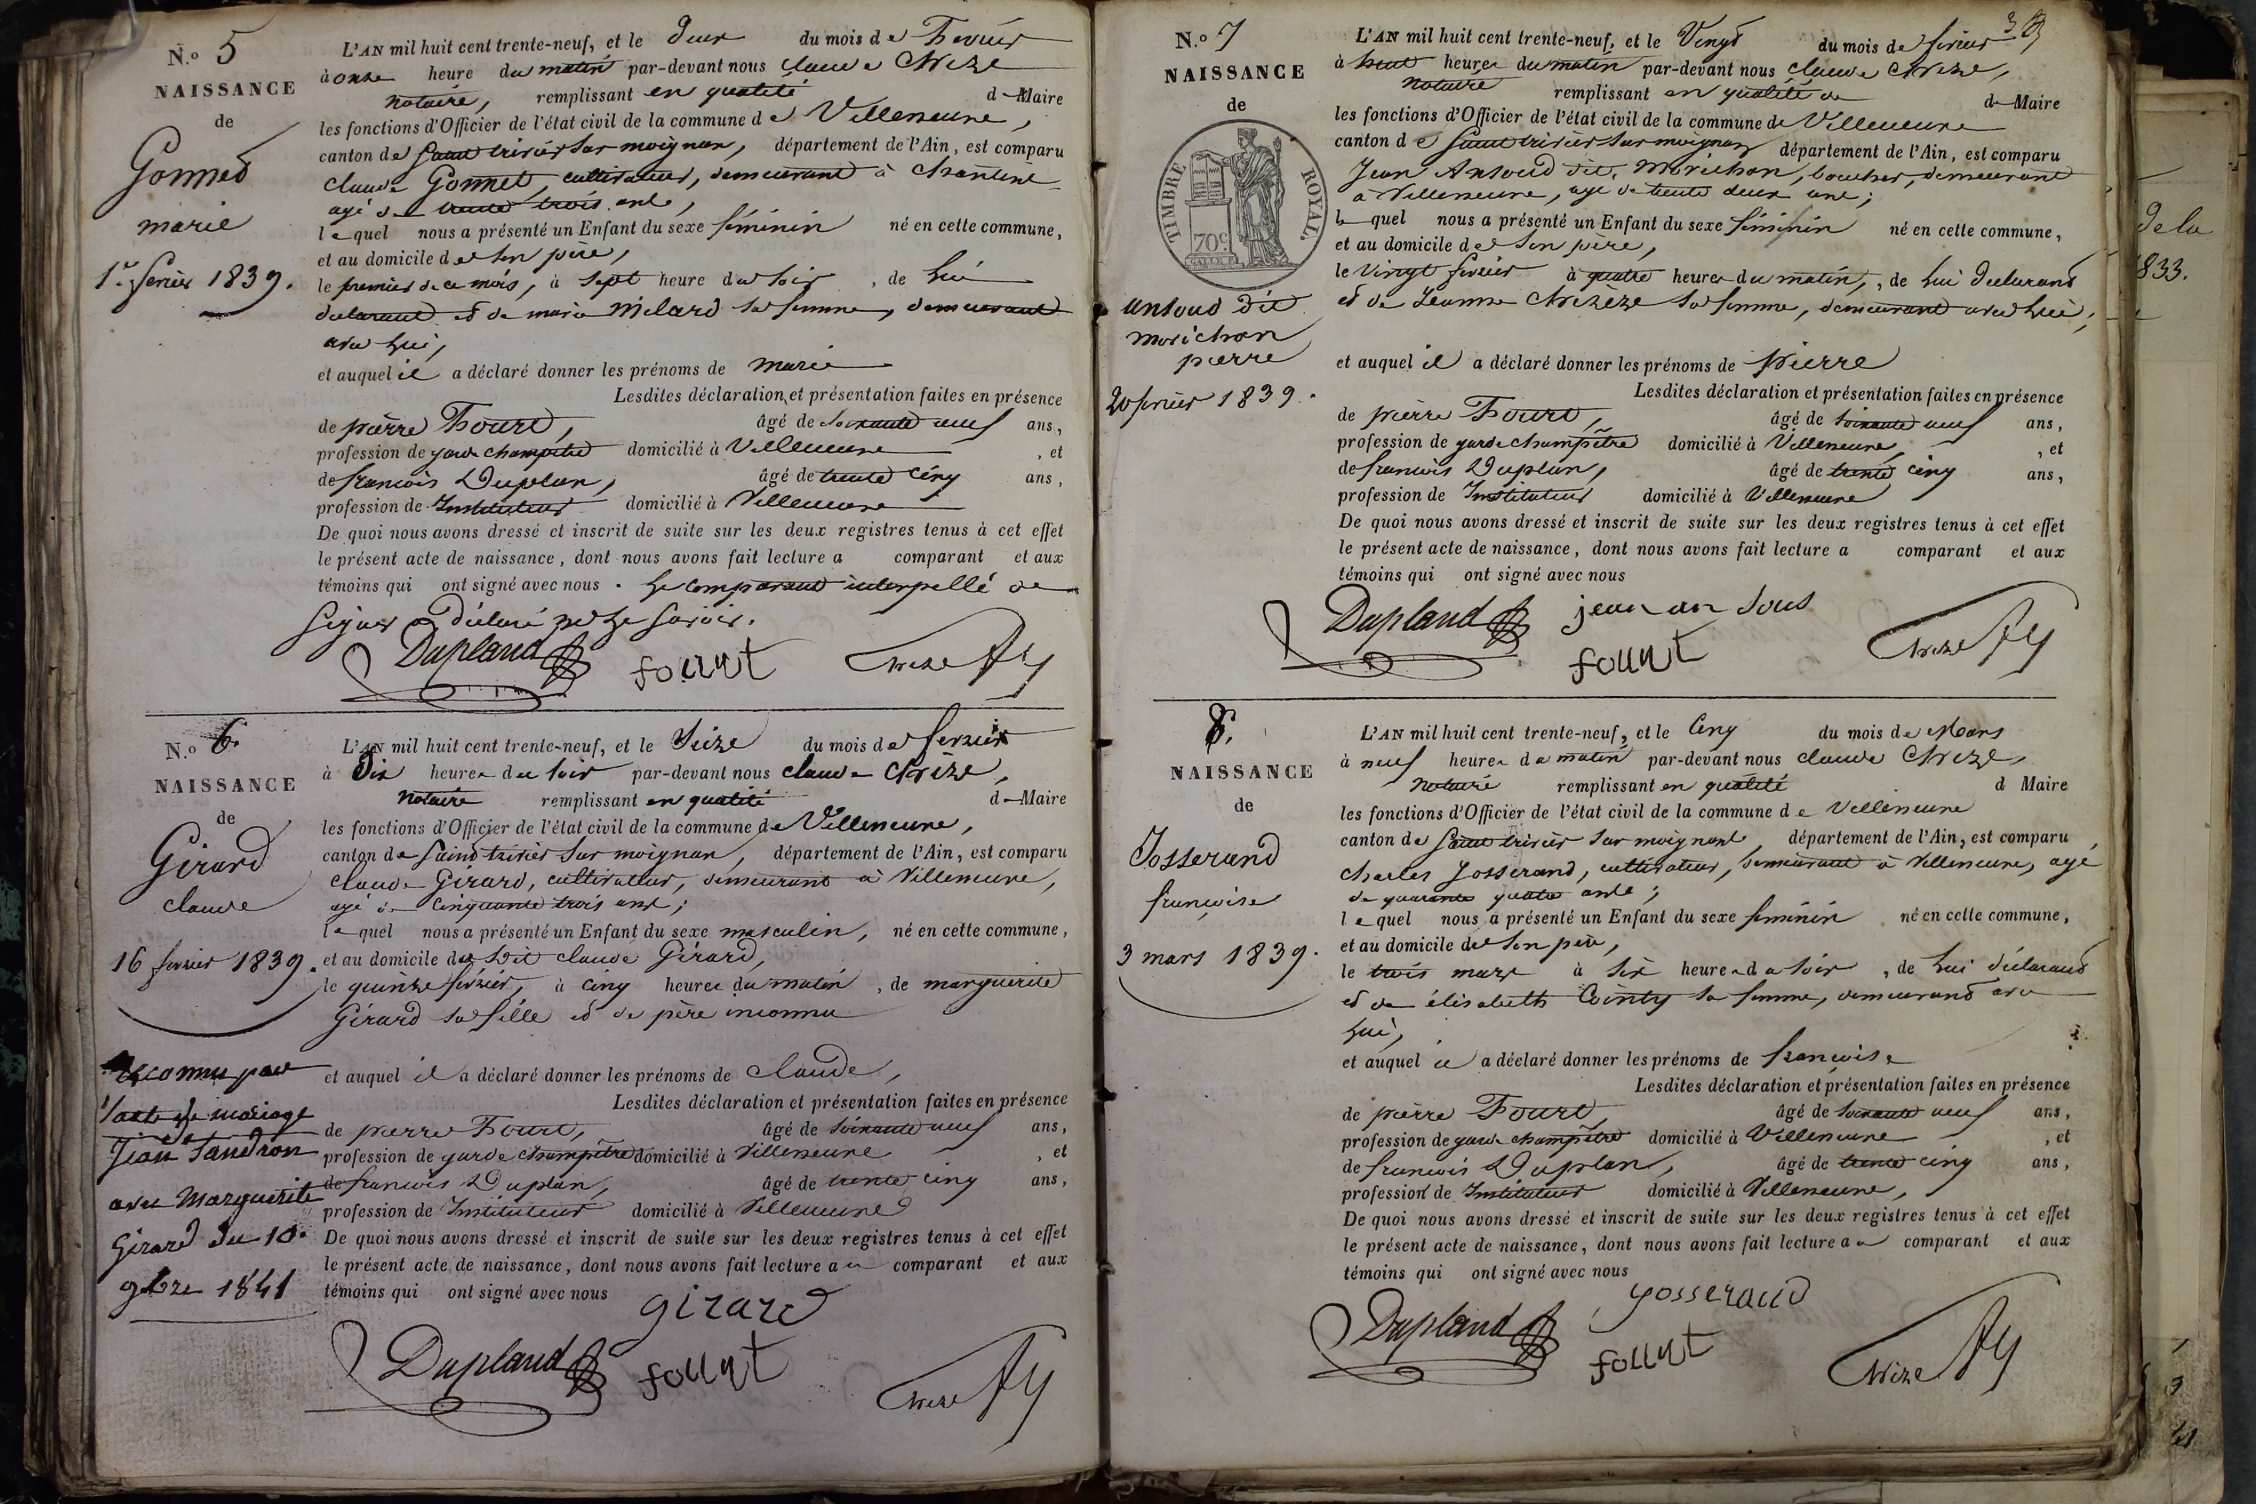 N.º 5
NAISSANCE
de
Gonned
marie
1er fevrier 1839.
L'AN mil huit cent trente-neuf, et le deux du mois de Fevrier
à onze heure du matin par-devant nous Claude
notaire, remplissant en qualité de Maire
les fonctions d'Officier de l'état civil de la commune de Villeneuve,
canton de Saint trivier Sur moignan, département de l'Ain, est comparu
Claude Gonnet, cultivateur, demeurant à
agé de trente trois ans,
lequel nous a présenté un Enfant du sexe féminin né en cette commune,
et au domicile de Son père,
le premier de ce mois, à Sept heure du Soir, de lui
declarant et de marie Milard Sa femme, demeurant
avec lui,
et auquel il a déclaré donner les prénoms de marie
Lesdites déclaration et présentation faites en présence
de pierre Fourt, âgé de Soixante neuf ans,
profession de garde champêtre domicilié à Villeneuve, et
de francois Duplan, âgé de trente cinq ans,
profession de Instituteur domicilié à Villeneuve
De quoi nous avons dressé et inscrit de suite sur les deux registres tenus à cet effet
le présent acte de naissance, dont nous avons fait lecture a comparant et aux
témoins qui ont signé avec nous. Le comparant interpellé de
Signer a déclaré ne le Savoir.
Dupland fourt
N.º 6.
NAISSANCE
de
Girard
claude
16 fevrier 1839.
reconnu par
l'acte de mariage
Jean Tandron
avec Marguerite
Girard du 10.
9bre 1841
L'AN mil huit cent trente-neuf, et le Seize du mois de fevrier
à Six heure du Soir par-devant nous claude
notaire remplissant en qualité de Maire
les fonctions d'Officier de l'état civil de la commune de Villeneuve,
canton de Saint trivier Sur moignan, département de l'Ain, est comparu
Claude Girard, cultivateur, demeurant à Villeneuve,
agé de Cinquante trois ans;
lequel nous a présenté un Enfant du sexe masculin, né en cette commune,
et au domicile du dit claude Girard,
le quinze fevrier, à cinq heures du matin, de marguerite
Girard Sa fille et de père inconnu
et auquel il a déclaré donner les prénoms de claude,
Lesdites déclaration et présentation faites en présence
de pierre Fourt, âgé de Soixante neuf ans,
profession de garde champêtre domicilié à Villeneuve, et
de francois Duplan, âgé de trente cinq ans,
profession de Instituteur domicilié à Villeneuve
De quoi nous avons dressé et inscrit de suite sur les deux registres tenus à cet effet
le présent acte de naissance, dont nous avons fait lecture au comparant et aux
témoins qui ont signé avec nous
girard
Dupland fourt
N.º 7
NAISSANCE
de
TIMBRE ROYAL.
70c
ansoud dit
morichon
pierre
20 fevrier 1839.
L'AN mil huit cent trente-neuf, et le Vingt du mois de fevrier
à huit heures du matin par-devant nous claude
notaire remplissant en qualité de de Maire
les fonctions d'Officier de l'état civil de la commune de Villeneuve
canton de Saint trivier Sur moignan département de l'Ain, est comparu
Jean Ansoud dit Morichon, boucher, demeurant
a Villeneuve, age de trente deux ans;
le quel nous a présenté un Enfant du sexe féminin né en cette commune,
et au domicile de Son père,
le Vingt fevrier à quatre heures du matin, de lui declarant
et de Jeanne Sa femme, demeurant avec lui;
et auquel il a déclaré donner les prénoms de pierre
Lesdites déclaration et présentation faites en présence
de pierre Fourt, âgé de Soixante neuf ans,
profession de garde champêtre domicilié à Villeneuve, et
de francois Duplan, âgé de trente cinq ans,
profession de Instituteur domicilié à Villeneuve
De quoi nous avons dressé et inscrit de suite sur les deux registres tenus à cet effet
le présent acte de naissance, dont nous avons fait lecture a comparant et aux
témoins qui ont signé avec nous
Dupland jean an Sous
fourt
8.
NAISSANCE
de
Josserand
françoise
3 mars 1839.
L'AN mil huit cent trente-neuf, et le Cinq du mois de Mars
à neuf heures du matin par-devant nous claude
notaire remplissant en qualité d Maire
les fonctions d'Officier de l'état civil de la commune de Villeneuve
canton de Saint trivier Sur moignant, département de l'Ain, est comparu
charles Josserand, cultivateur, demeurant à Villeneuve, agé
de quarante quatre ans;
lequel nous a présenté un Enfant du sexe féminin né en cette commune,
et au domicile de Son père,
le trois mars à Six heures du Soir, de Lui déclarant
et de élisabeth Cointy Sa femme, demeurant avec
lui,
et auquel il a déclaré donner les prénoms de francoise
Lesdites déclaration et présentation faites en présence
de pierre Fourt, âgé de Soixante neuf ans,
profession de garde champêtre domicilié à Villeneuve, et
de francois Duplan, âgé de trente cinq ans,
profession de Instituteur domicilié à Villeneuve,
De quoi nous avons dressé et inscrit de suite sur les deux registres tenus à cet effet
le présent acte de naissance, dont nous avons fait lecture au comparant et aux
témoins qui ont signé avec nous
yosserand
Dupland fourt
de la
1833.